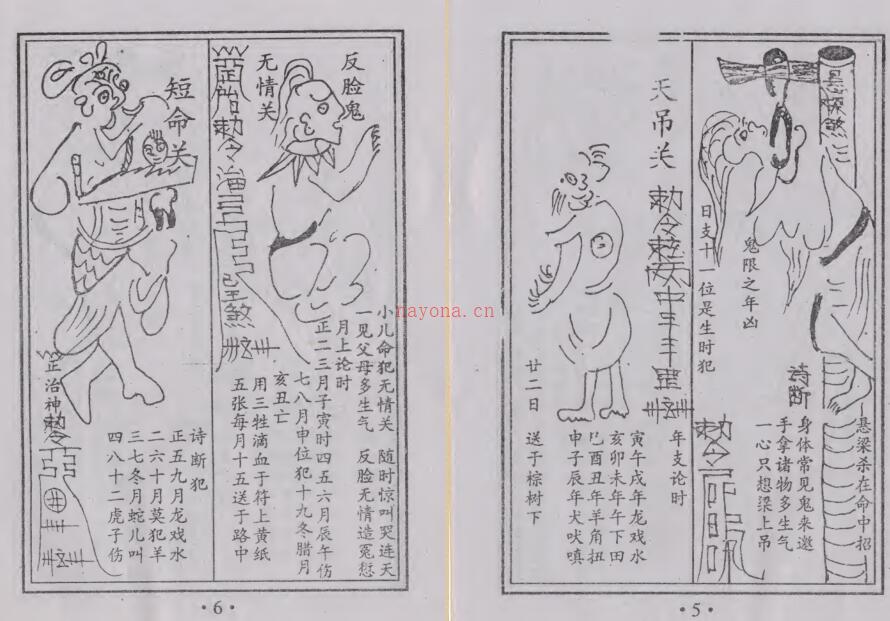 悬梁煞
诗断
悬梁杀在命中招
身体常见鬼来邀
手拿诸物多生气
一心只想梁上吊
鬼限之年凶
日支十一位是生时犯
勅令
天吊关
勅令
年支论时
寅午戌年龙戏水
亥卯未年午下田
巳酉丑年羊角扭
申子辰年犬吠嗔
廿二日 送于棕树下
·5·
反脸鬼
无情关
小儿命犯无情关 随时惊叫哭连天
一见父母多生气 反脸无情造冤愆
月上论时
正二三月子寅时四五六月辰午伤
七八月申位犯十九冬腊月
亥丑亡
用三牲滴血于符上黄纸
五张每月十五送于路中
勅令治
煞
短命关
诗断犯
正五九月龙戏水
二六十月莫犯羊
三七冬月蛇儿叫
四八十二虎子伤
正治神勅令
·6·
nayona.cn